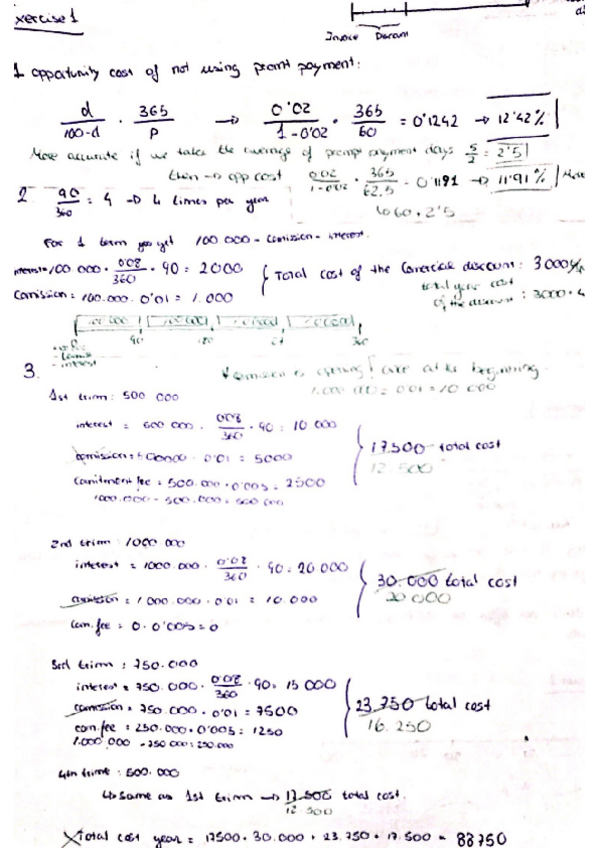 xercise 1
Invoice Discount
1 opportunity cost of not using promt payment:
d/100-d · 365/P → 0'02/1-0'02 · 365/60 = 0'1242 → 12'42%
More accurate if we take the average of prompt payment days 5/2 = 2'5
then → opp cost 0'02/1-0'02 · 365/62.5 = 0'1191 → 11'91% More
↳ 60+2'5
2 90/360 = 4 → 4 times per year
For 1 term you get 100 000 - comission - interest.
interest = 100 000 · 0'08/360 · 90 = 2000
Comission = 100.000 · 0'01 = 1.000
Total cost of the Comercial discount: 3000
total year cost
of the discount : 3000·4
100 000 100 000 100 000 100 000
90 180 27 360
- comis
- interest
3.
Comission is opening! take at the beginning.
1.000.000 · 0'01 = 10 000
1st trim: 500 000
interest = 500 000 · 0'08/360 · 90 = 10 000
comission = 500000 · 0'01 = 5000
Comitment fee = 500.000 · 0'005 = 2500
1000.000 - 500.000 = 500 000
17500 total cost
12 500
2nd trim: 1000 000
interest = 1000.000 · 0'08/360 · 90 = 20 000
comission = 1 000.000 · 0'01 = 10.000
com.fee = 0·0'005 = 0
30.000 total cost
20 000
3rd trim: 750.000
interest = 750.000 · 0'08/360 · 90 = 15 000
comission = 750.000 · 0'01 = 7500
com.fee = 250.000 · 0'005 = 1250
1.000 000 - 750 000 = 250.000
23.750 total cost
16.250
4th trime: 500.000
↳ same as 1st trim → 17.500 total cost.
12 500
X Total cost year = 17500 + 30.000 + 23.750 + 17.500 = 88750